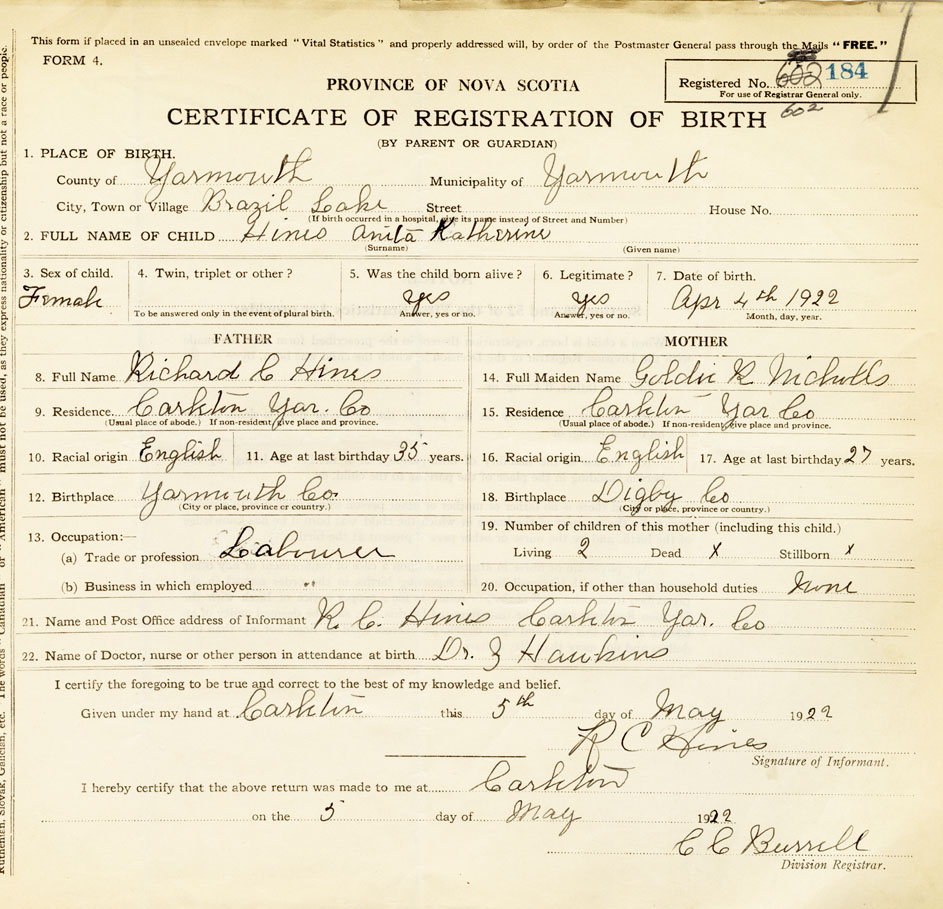 This form if placed in an unsealed envelope marked "Vital Statistics" and properly addressed will, by order of the Postmaster General pass through the Mails "FREE."
FORM 4.
Registered No. 602 184
For use of Registrar General only.
602
PROVINCE OF NOVA SCOTIA
CERTIFICATE OF REGISTRATION OF BIRTH
(BY PARENT OR GUARDIAN)
1. PLACE OF BIRTH.
County of Yarmouth Municipality of Yarmouth
City, Town or Village Brazil Lake Street House No.
(If birth occurred in a hospital, give its name instead of Street and Number)
2. FULL NAME OF CHILD Hines Anita Katherine
(Surname) (Given name)
3. Sex of child. 4. Twin, triplet or other? 5. Was the child born alive? 6. Legitimate? 7. Date of birth.
Female yes yes Apr 4th 1922
To be answered only in the event of plural birth. Answer, yes or no. Answer, yes or no. Month, day, year.
FATHER MOTHER
8. Full Name Richard C Hines 14. Full Maiden Name Goldie R Nicholls
9. Residence Carleton Yar. Co 15. Residence Carleton Yar Co
(Usual place of abode.) If non-resident, give place and province. (Usual place of abode.) If non-resident, give place and province.
10. Racial origin English 11. Age at last birthday 35 years. 16. Racial origin English 17. Age at last birthday 27 years.
12. Birthplace Yarmouth Co. 18. Birthplace Digby Co
(City or place, province or country.) (City or place, province or country.)
13. Occupation:— 19. Number of children of this mother (including this child.)
(a) Trade or profession Labourer Living 2 Dead x Stillborn x
(b) Business in which employed " 20. Occupation, if other than household duties None
21. Name and Post Office address of Informant R. C. Hines Carleton Yar. Co
22. Name of Doctor, nurse or other person in attendance at birth Dr. Z Hawkins
I certify the foregoing to be true and correct to the best of my knowledge and belief.
Given under my hand at Carleton this 5th day of May 1922
R C Hines
Signature of Informant.
I hereby certify that the above return was made to me at Carleton
on the 5 day of May 1922
C C Burrell
Division Registrar.
Ruthenian, Slovak, Galician, etc. The words "Canadian" or "American" must not be used, as they express nationality or citizenship but not a race or people.